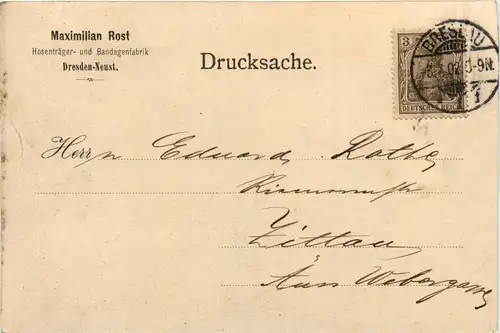 Maximilian Rost
Hosenträger- und Bandagenfabrik
Dresden-Neust.
Drucksache.
3
DEUTSCHES REICH
BRESLAU
5-9N.
1
Herrn Eduard Rothe
Riemermstr
Zittau
Auss Webergasse